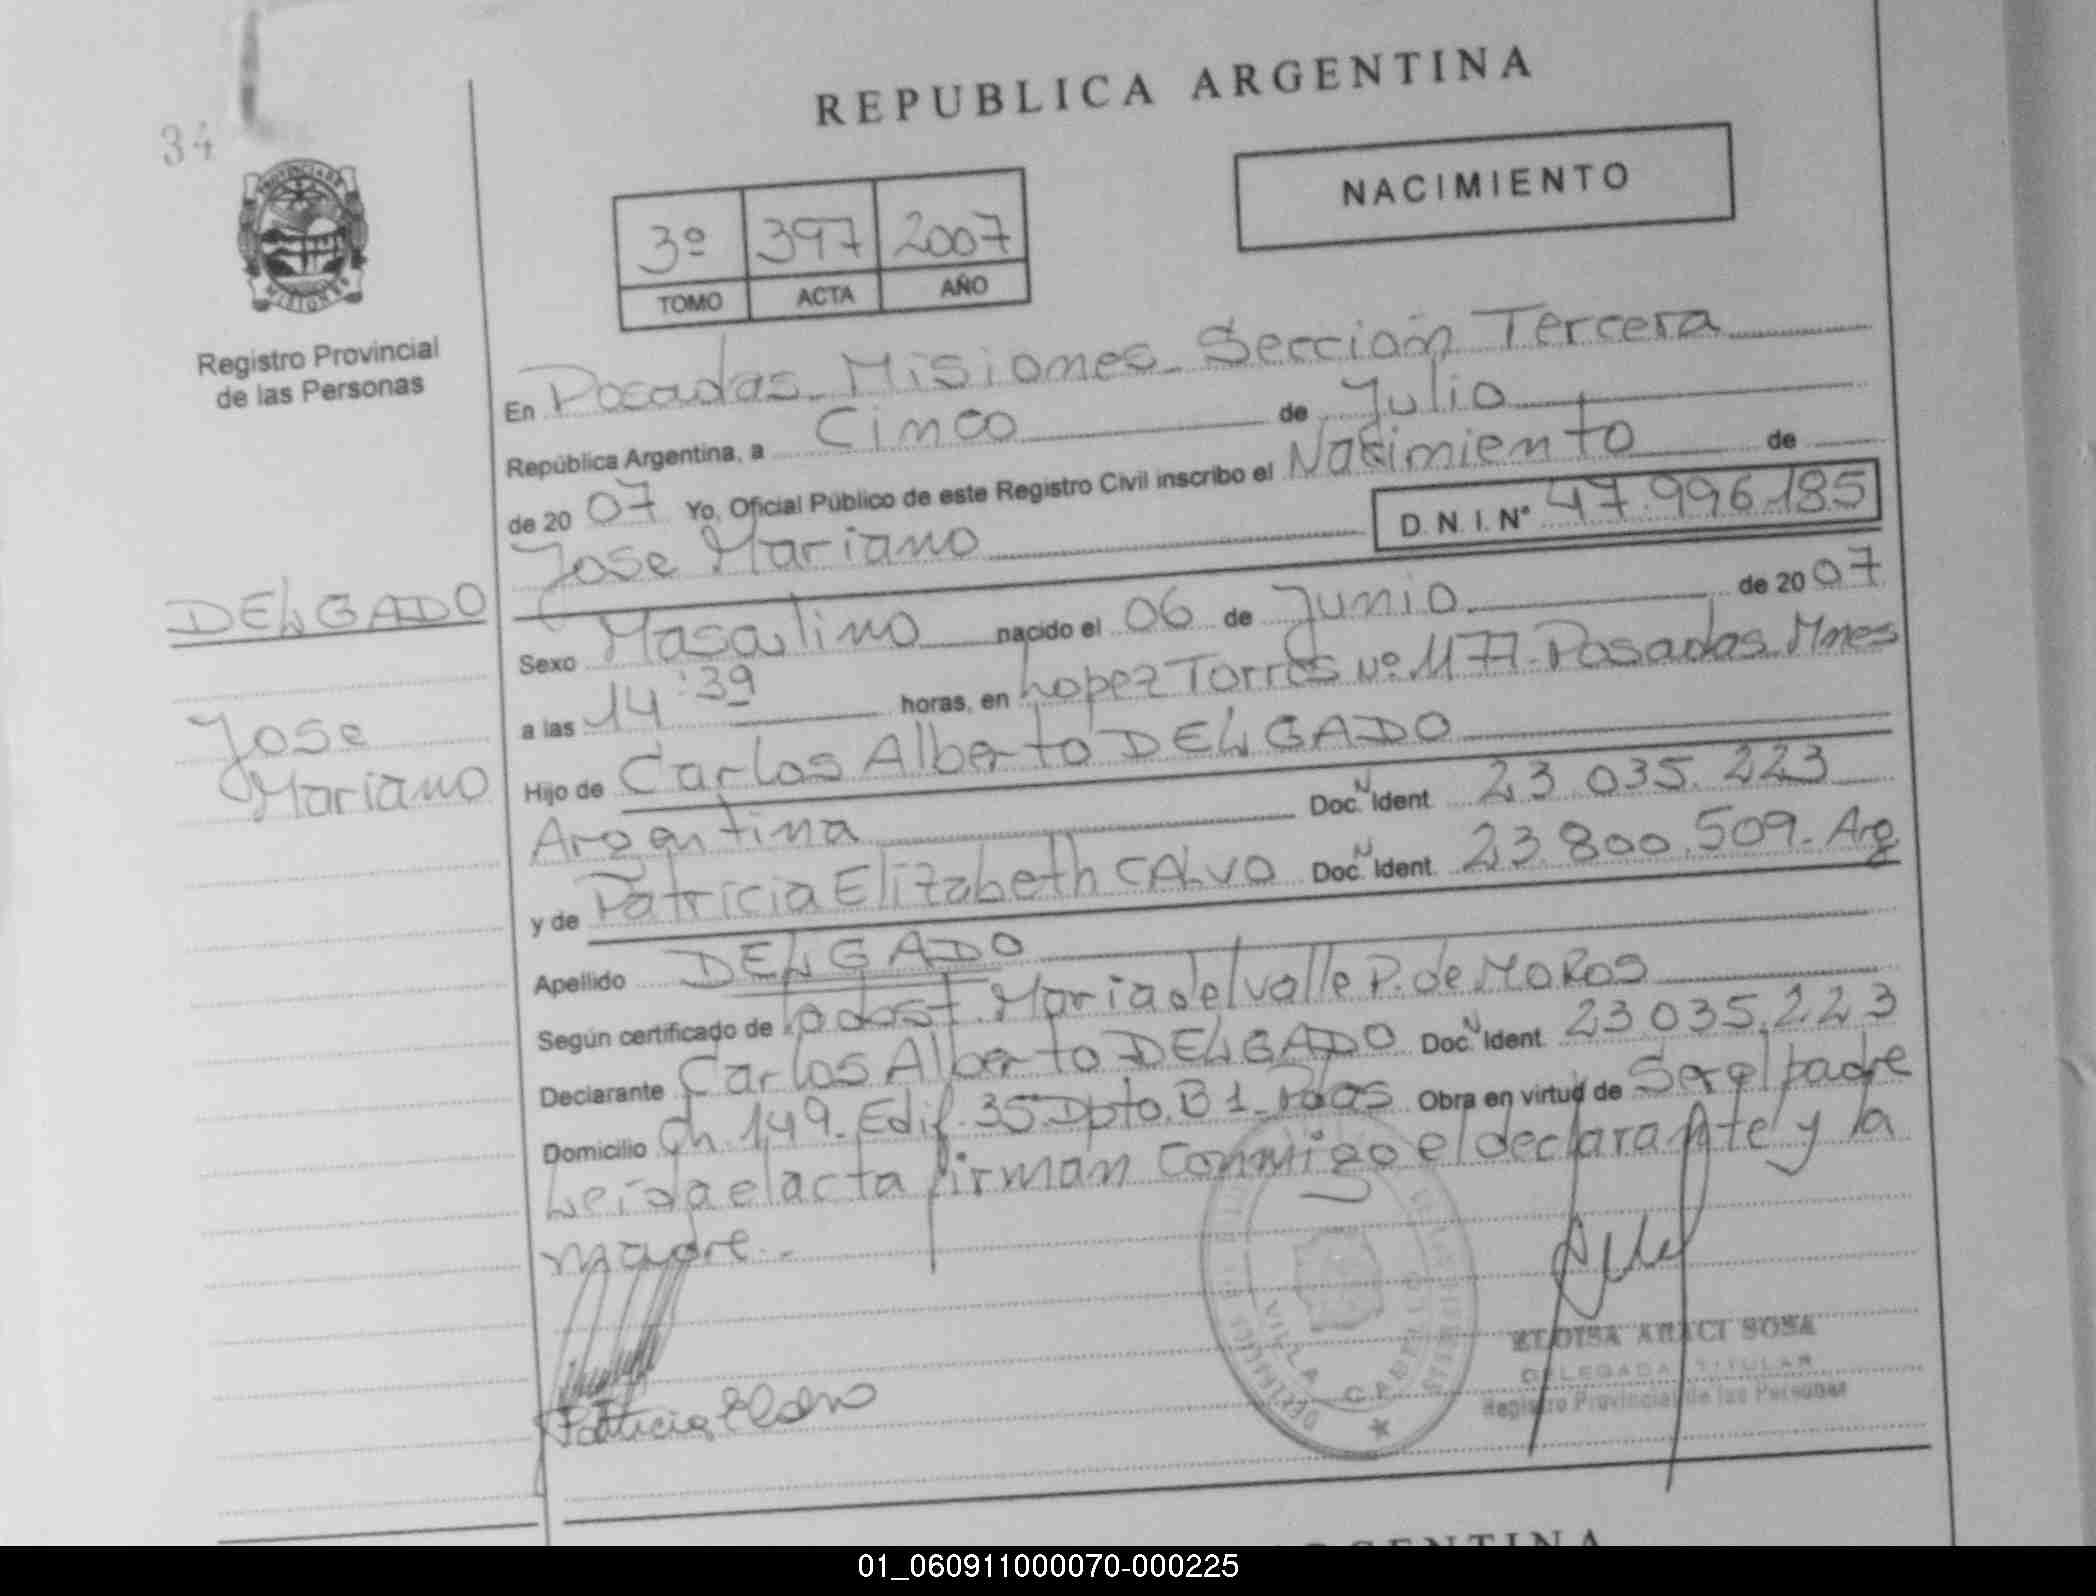 34
PROVINCIA DE
MISIONES
Registro Provincial
de las Personas
REPUBLICA ARGENTINA
NACIMIENTO
3º 397 2007
TOMO ACTA AÑO
En Posadas Misiones Sección Tercera
República Argentina, a Cinco de Julio
de 20 07 Yo, Oficial Público de este Registro Civil inscribo el Nacimiento de
Jose Mariano D.N.I.Nº 47.996.185
DELGADO
Jose
Mariano
Sexo Masculino nacido el 06 de Junio de 20 07
a las 14:39 horas, en Lopez Torres Nº 1177 Posadas Mnes
Hijo de Carlos Alberto DELGADO
Argentina Doc. N Ident 23.035.223
y de Patricia Elizabeth CALVO Doc. N Ident. 23.800.509. Arg
Apellido DELGADO
Según certificado de obst. Maria del valle P. de MOROS
Declarante Carlos Alberto DELGADO Doc. N Ident. 23.035.223
Domicilio Ch. 149. Edif. 35 Dpto. B1. Pdas Obra en virtud de Ser el padre
Leida el acta firman Conmigo el declarante y la
madre.-
VILLA CABELLO
ELOISA ARACI SOSA
DELEGADA TITULAR
Registro Provincial de las Personas
Patricia
ARGENTINA
01_060911000070-000225